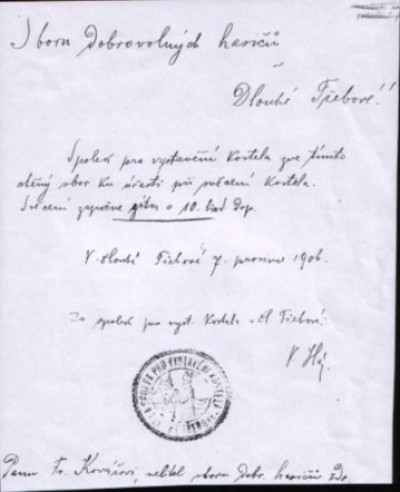 Sboru Dobrovolných hasičů
v
Dlouhé Třebové!
Spolek pro vystavění Kostela zve tímto
ctěný sbor ku účasti při svěcení Kostela.
Svěcení započne o 10. hod. dop.
V Dlouhé Třebové 7. prosince 1906.
Za spolek pro vyst. Kostela v Dl. Třebové:
V.
SPOLEK PRO VYSTAVĚNÍ KOSTELA
Panu Fr. Kovářovi, velitel sboru dobr. hasičů Zde.